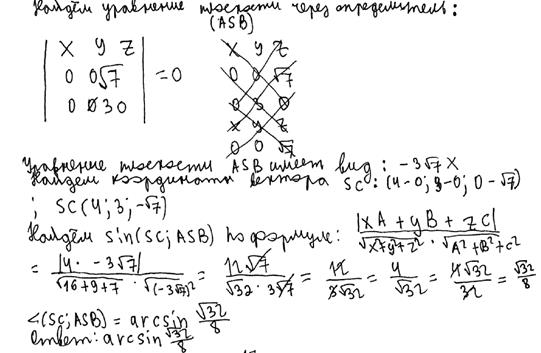 Найдём уравнение плоскости через определитель:
(ASB)
| x y z |
| 0 0 √7 | = 0
| 0 3 0 |
x y z
0 0 √7
0 3 0
x y z
0 0 √7
Уравнение плоскости ASB имеет вид: -3√7 x
Найдем координаты вектора SC: (4-0; 3-0; 0-√7)
; SC(4; 3; -√7)
Найдём sin(SC; ASB) по формуле: |xA + yB + zC| / √x²+y²+z² · √A²+B²+C²
= |4 · -3√7| / √16+9+7 · √(-3√7)² = 12√7 / √32 · 3√7 = 12 / 3√32 = 4 / √32 = 4√32 / 32 = √32 / 8
∠(SC; ASB) = arcsin √32 / 8
Ответ: arcsin √32 / 8